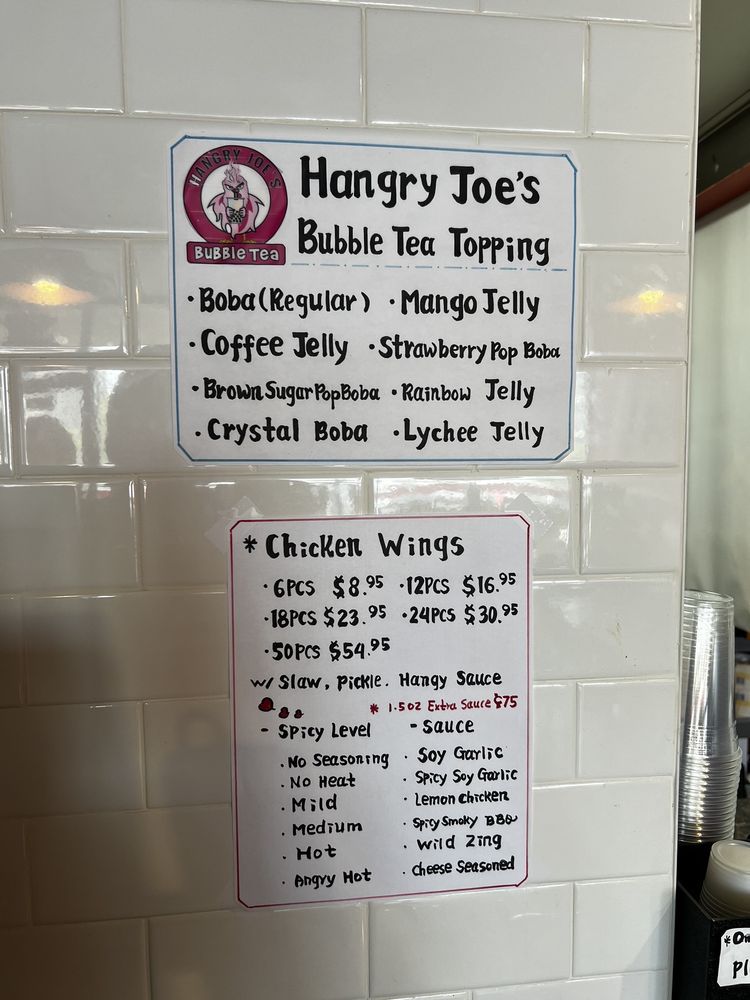 HANGRY JOE'S
BUBBLE TEA
Hangry Joe's
Bubble Tea Topping
· Boba (Regular) · Mango Jelly
· Coffee Jelly · Strawberry Pop Boba
· Brown Sugar Pop Boba · Rainbow Jelly
· Crystal Boba · Lychee Jelly
* Chicken Wings
· 6PCS $8.95 · 12PCS $16.95
· 18PCS $23.95 · 24PCS $30.95
· 50PCS $54.95
w/ Slaw, Pickle. Hangy Sauce
* 1.5oz Extra Sauce $.75
- Spicy Level - Sauce
. No Seasoning · Soy Garlic
. No Heat · Spicy Soy Garlic
. Mild · Lemon Chicken
. Medium · Spicy Smoky BBQ
. Hot · Wild Zing
. Angry Hot · Cheese Seasoned